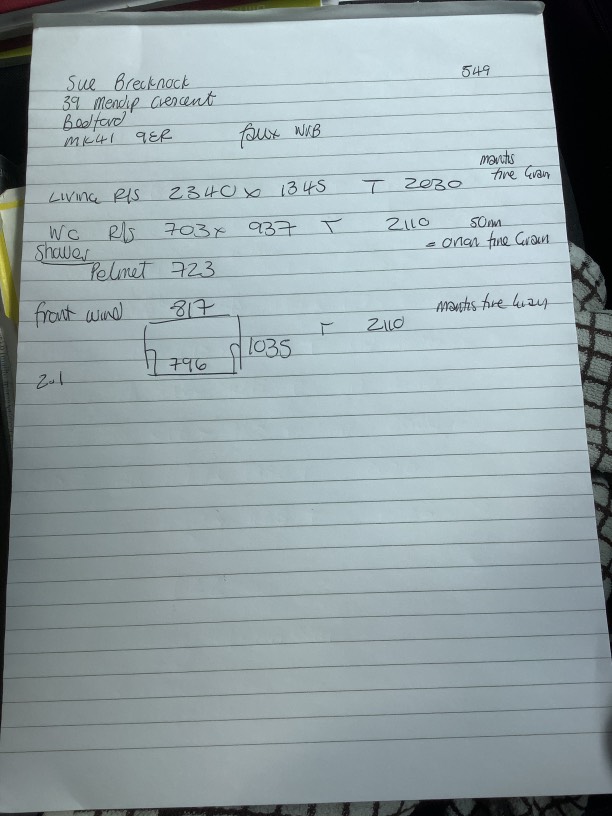 549
Sue Brecknock
39 Mendip Crescent
Bedford
MK41 9ER faux WVB
Living R/S 2340 x 1345 T 2030 mantis fine Grain
WC R/S 703 x 937 T 2110 50mm
= fine Grain
Shower
Pelmet 723
front wind 817 T 2110 mantis fine Grain
1035
796
2.1